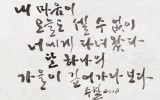 내 마음이
오늘도 셀 수 없이
너에게 다녀왔다
딱 하나의
가을이 깊어가나보다